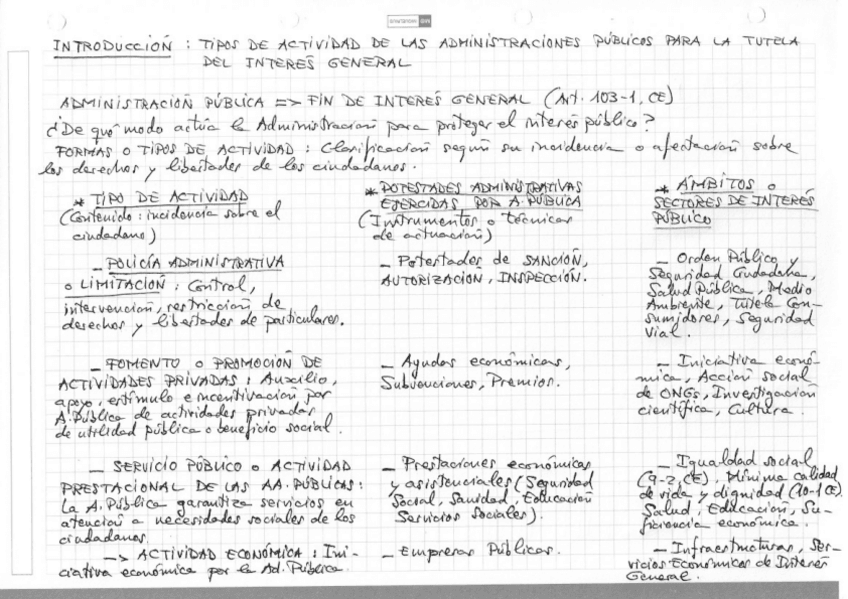 INTRODUCCIÓN : TIPOS DE ACTIVIDAD DE LAS ADMINISTRACIONES PÚBLICOS PARA LA TUTELA
DEL INTERÉS GENERAL
ADMINISTRACIÓN PÚBLICA => FIN DE INTERÉS GENERAL (Art. 103-1, CE)
¿De qué modo actúa la Administración para proteger el interés público?
FORMAS O TIPOS DE ACTIVIDAD : Clasificación según su incidencia o afectación sobre
los derechos y libertades de los ciudadanos.
* TIPO DE ACTIVIDAD
(Contenido : incidencia sobre el
ciudadano)
* POTESTADES ADMINISTRATIVAS
EJERCIDAS POR A. PÚBLICA
(Instrumentos o técnicas
de actuación)
* ÁMBITOS o
SECTORES DE INTERÉS
PÚBLICO
– POLICÍA ADMINISTRATIVA
o LIMITACIÓN : Control,
intervención, restricción de
derechos y libertades de particulares.
– Potestades de SANCIÓN,
AUTORIZACIÓN, INSPECCIÓN.
– Orden Público y
Seguridad Ciudadana,
Salud Pública, Medio
Ambiente, Tutela Con-
sumidores, Seguridad
Vial.
– FOMENTO O PROMOCIÓN DE
ACTIVIDADES PRIVADAS : Auxilio,
apoyo, estímulo e incentivación por
A. Pública de actividades privadas
de utilidad pública o beneficio social.
– Ayudas económicas,
Subvenciones, Premios.
– Iniciativa econó-
mica, Acción social
de ONGs, Investigación
científica, Cultura.
– SERVICIO PÚBLICO O ACTIVIDAD
PRESTACIONAL DE LAS AA. PÚBLICAS :
la A. Pública garantiza servicios en
atención a necesidades sociales de los
ciudadanos.
– Prestaciones económicas
y asistenciales (Seguridad
Social, Sanidad, Educación
Servicios Sociales).
– Igualdad social
(9-2, CE), Mínima calidad
de vida y dignidad (10-1 CE)
Salud, Educación, Su-
ficiencia económica.
–> ACTIVIDAD ECONÓMICA : Ini-
ciativa económica por la Ad. Pública.
– Empresas Públicas.
– Infraestructuras, Ser-
vicios Económicos de Interés
General.